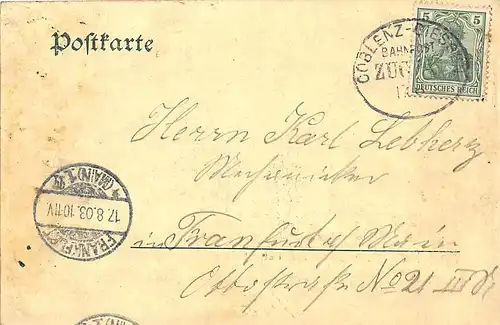 Postkarte
5 5
DEUTSCHES REICH
COBLENZ-
BAHNPOST
ZUG
Herrn Karl Lebherz
Mechaniker
in Frankfurt a/ Main
Ottostraße No 21 III
FRANKFURT (MAIN) 1
17.8.03.10-11V.